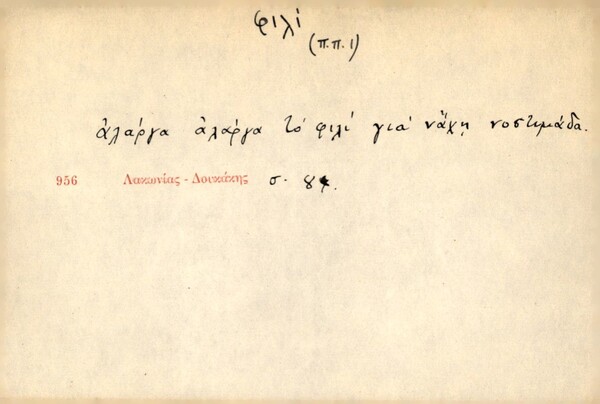 φιλί
(π.π. 1)
ἀλάργα ἀλάργα τὸ φιλί γιὰ νἄχῃ νοστιμάδα.
956 Λακωνίας - Δουκάκης σ.